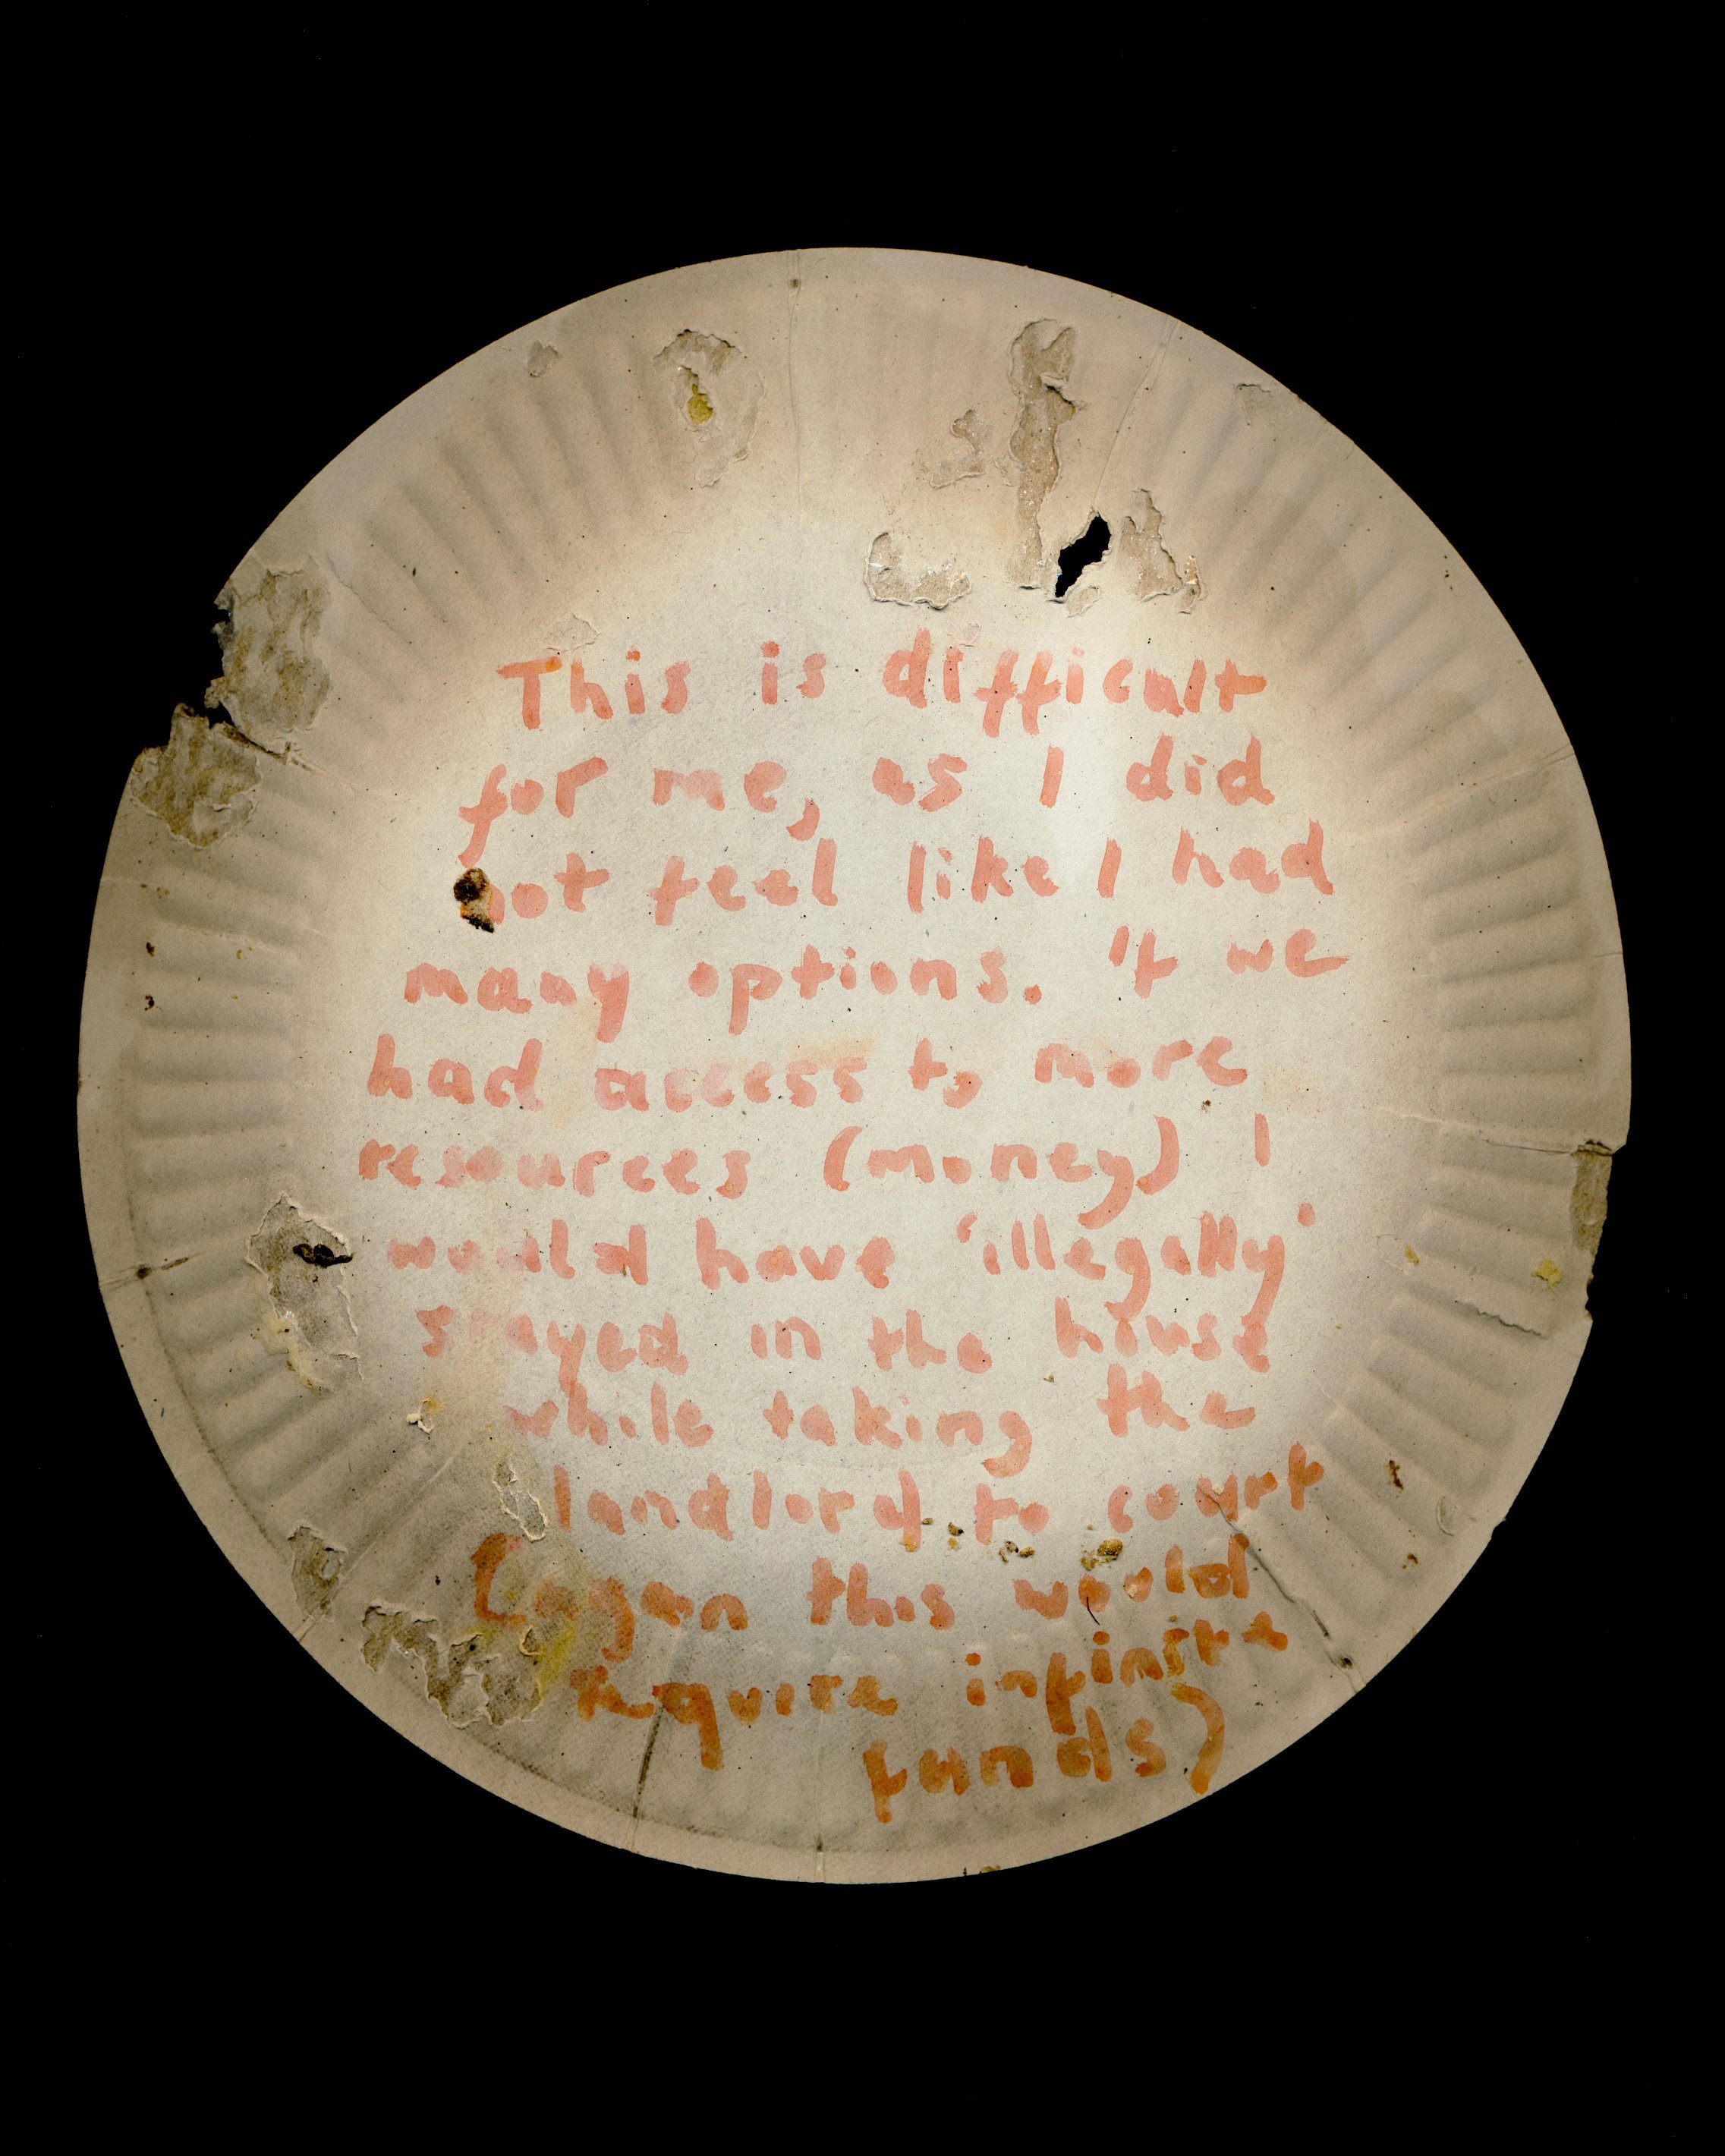 This is difficult
for me, as I did
not feel like I had
many options. If we
had access to more
resources (money) I
would have 'illegally'
stayed in the house
while taking the
landlord to court
(again this would
require infinite
funds)